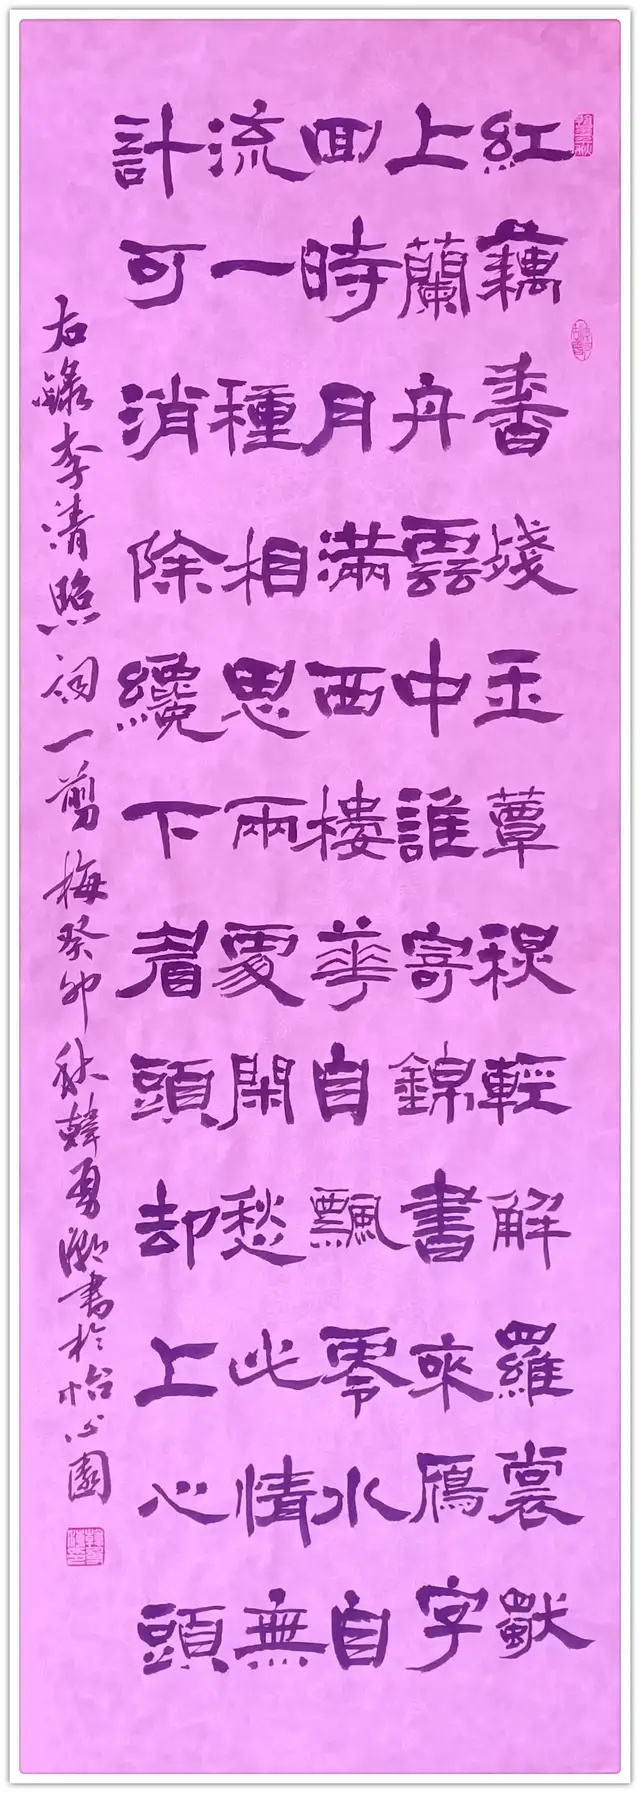 紅藕香殘玉蕈秋輕解羅裳獨
上蘭舟雲中誰寄錦書來鴈字
回時月滿西樓華自飄零水自
流一種相思兩處閑愁此情無
計可消除纔下眉頭却上心頭
右錄李清照詞一剪梅癸卯秋韓書於怡心園